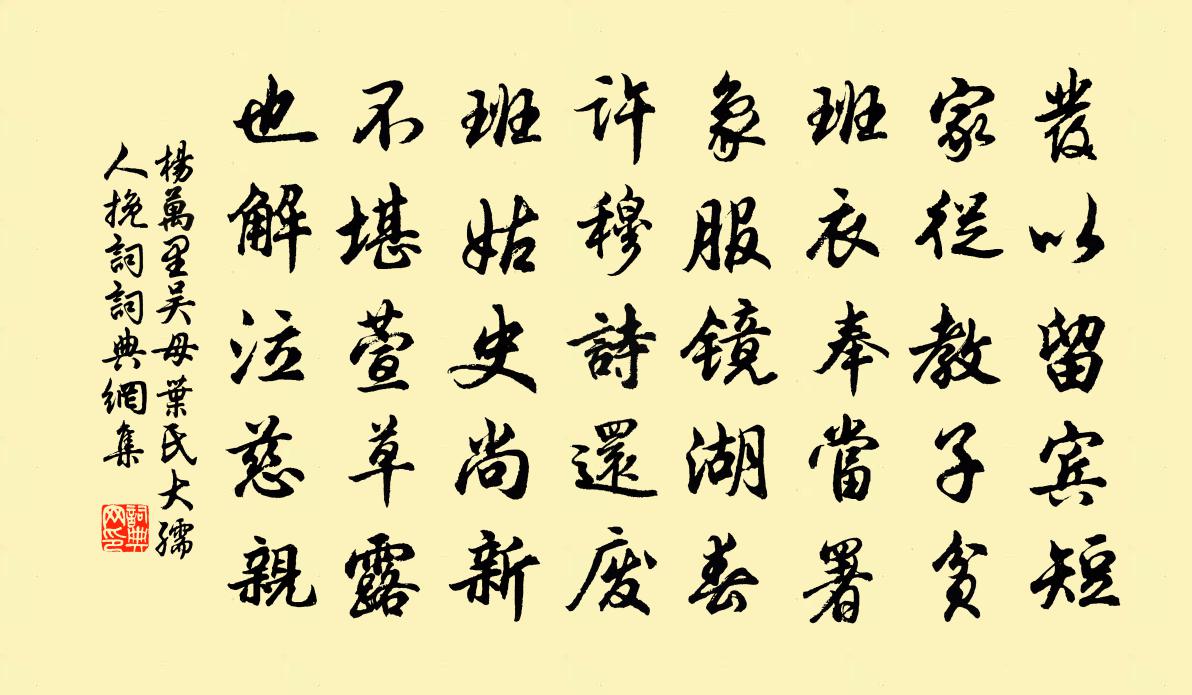 發以留宾短
家從教子貧
班衣奉當署
象服镜湖春
許穆詩還废
班姑史尚新
不堪萱草露
也解泣慈親
楊萬里吴母葉氏大孺
人挽詞詞典網集
詞典
网印